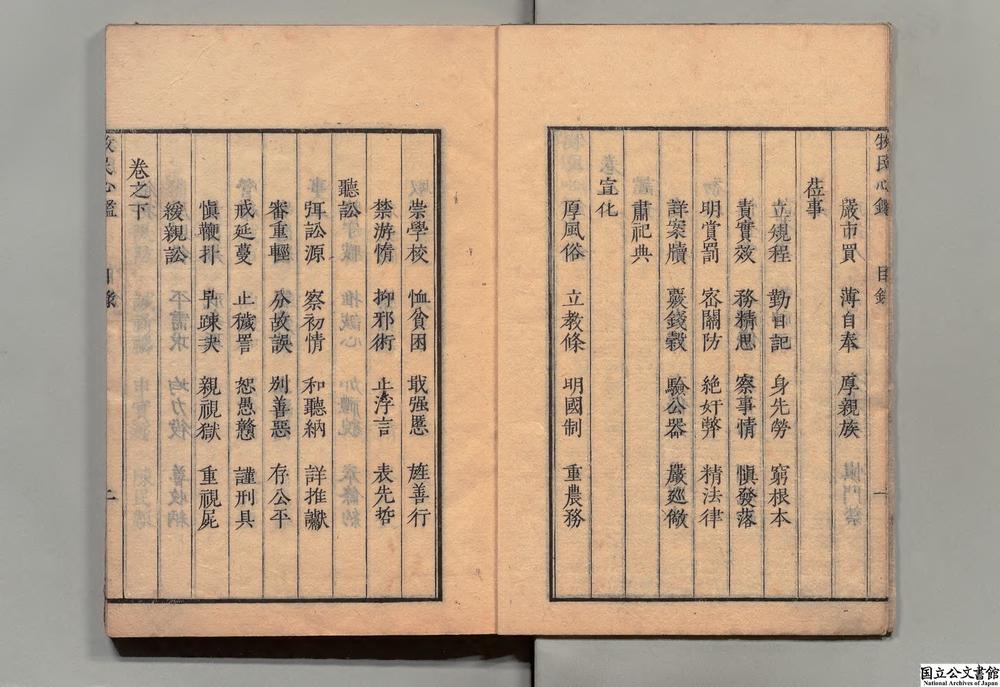 牧民心鑑 目錄 一
嚴市買 薄自奉 厚親族
蒞事
立規程 勤日記 身先勞 窮根本
責實效 務精思 察事情 慎發落
明賞罰 密關防 絶奸弊 精法律
詳案牘 嚴錢穀 驗公器 嚴廵儆
肅祀典
宣化
厚風俗 立教條 明國制 重農務
崇學校 恤貧困 戢强慝 旌善行
禁游惰 抑邪術 止浮言 表先哲
聽訟
弭訟源 察初情 和聽納 詳推讞
審重輕 分故誤 別善惡 存公平
戒延蔓 止穢詈 恕愚戇 謹刑具
慎鞭扑 早踈决 親視獄 重視屍
緩親訟
卷之下
牧民心鑑 目錄 二
国立公文書館
National Archives of Japan